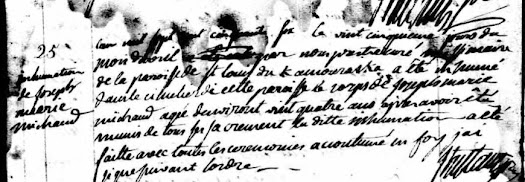 25
inhumation
de joseph
marie
michaud
Lan mil sept cent cinquante six le vint cinquieme jour du
mois davril par nous pretre curé missionnaire
de la paroisse de st louis du Kamouraska a été inhumé
dans le cimetiere de cette paroisse le corps de joseph marie
michaud agé denviront vint quatre ans apres avoir été
munis de tous ses sacrements la ditte inhumation a été
faitte avec toutes les ceremonies acoutumé en foy jai
signé suivant lordre